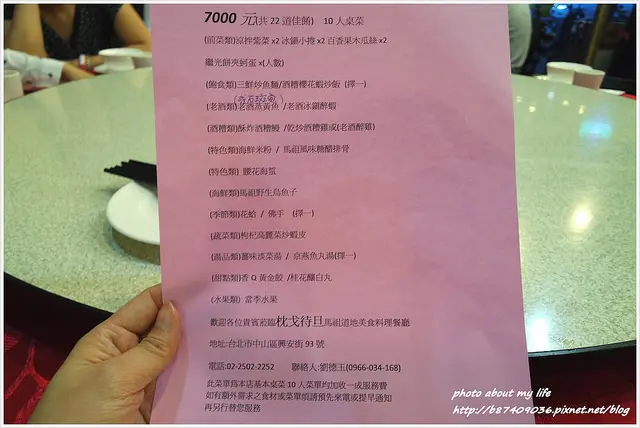 7000 元(共 22 道佳餚) 10 人桌菜
(前菜類)涼拌紫菜 x2 冰鎮小捲 x2 百香果木瓜絲 x2
繼光餅夾蚵蛋 x(人數)
(飽食類)三鮮炒魚麵/酒糟櫻花蝦炒飯 (擇一)
(老酒類)老酒蒸黃魚 /老酒冰鎮醉蝦
(酒糟類)酥炸酒糟鰻 /乾炒酒糟雞或(老酒醉雞)
(特色類)海鮮米粉 / 馬祖風味糖醋排骨
(特色類) 腰花海蜇
(海鮮類)馬祖野生烏魚子
(季節類)花蛤 / 佛手 (擇一)
(蔬菜類)枸杞高麗菜炒蝦皮
(湯品類)薑味淡菜湯 / 京燕魚丸湯(擇一)
(甜點類)香 Q 黃金餃 /桂花釀白丸
(水果類) 當季水果
歡迎各位貴賓蒞臨枕戈待旦馬祖道地美食料理餐廳
地址:台北市中山區興安街 93 號
電話:02-2502-2252 聯絡人:劉德玉(0966-034-168)
此菜單為本店基本桌菜 10 人菜單均加收一成服務費
如有額外需求之食材或菜單煩請預先來電或提早通知
再另行替您服務
photo about my life
http://b87409036.pixnet.net/blog